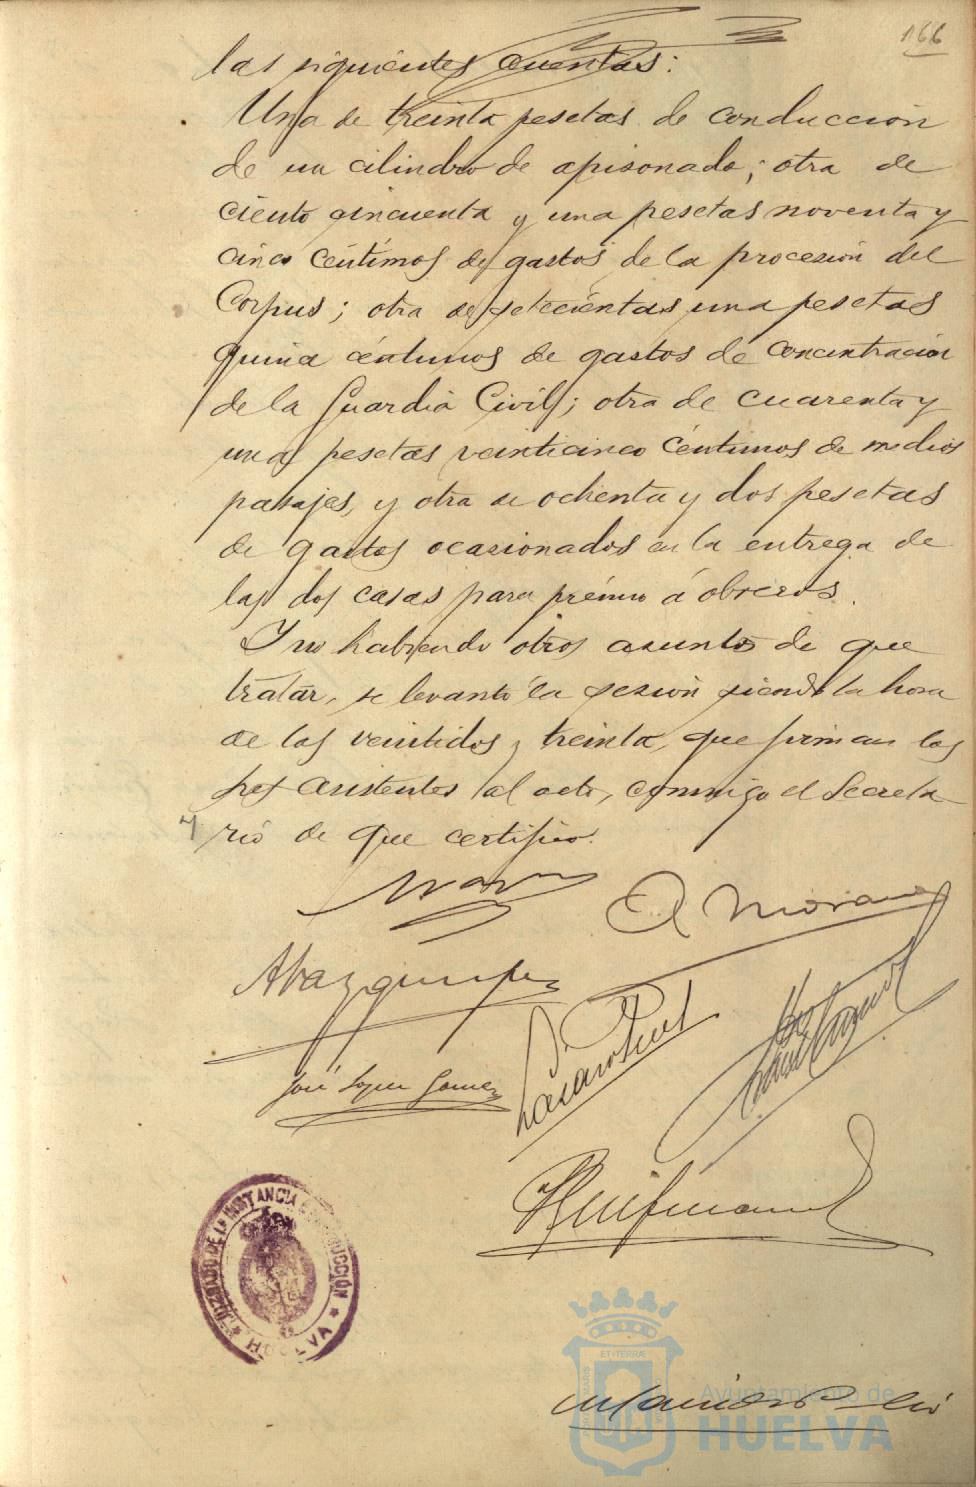 166
las siguientes cuentas:
Una de treinta pesetas de conducción
de un cilindro de apisonado; otra de
ciento cincuenta y una pesetas noventa y
cinco céntimos de gastos de la procesión del
Corpus; otra de setecientas una pesetas
quince céntimos de gastos de concentración
de la Guardia Civil; otra de cuarenta y
una pesetas veinticinco céntimos de medios
pasajes, y otra de ochenta y dos pesetas
de gastos ocasionados en la entrega de
las dos casas para premio á obreros.
Y no habiendo otros asuntos de que
tratar, se levantó la sesión siendo la hora
de las veintidos y treinta, que firman los
asistentes al acto, conmigo el Secreta
rio de que certifico.
A Moreno
José López Gómez
JUZGADO DE 1ª INSTANCIA E INSTRUCCIÓN
* HUELVA *
Ayuntamiento de
HUELVA